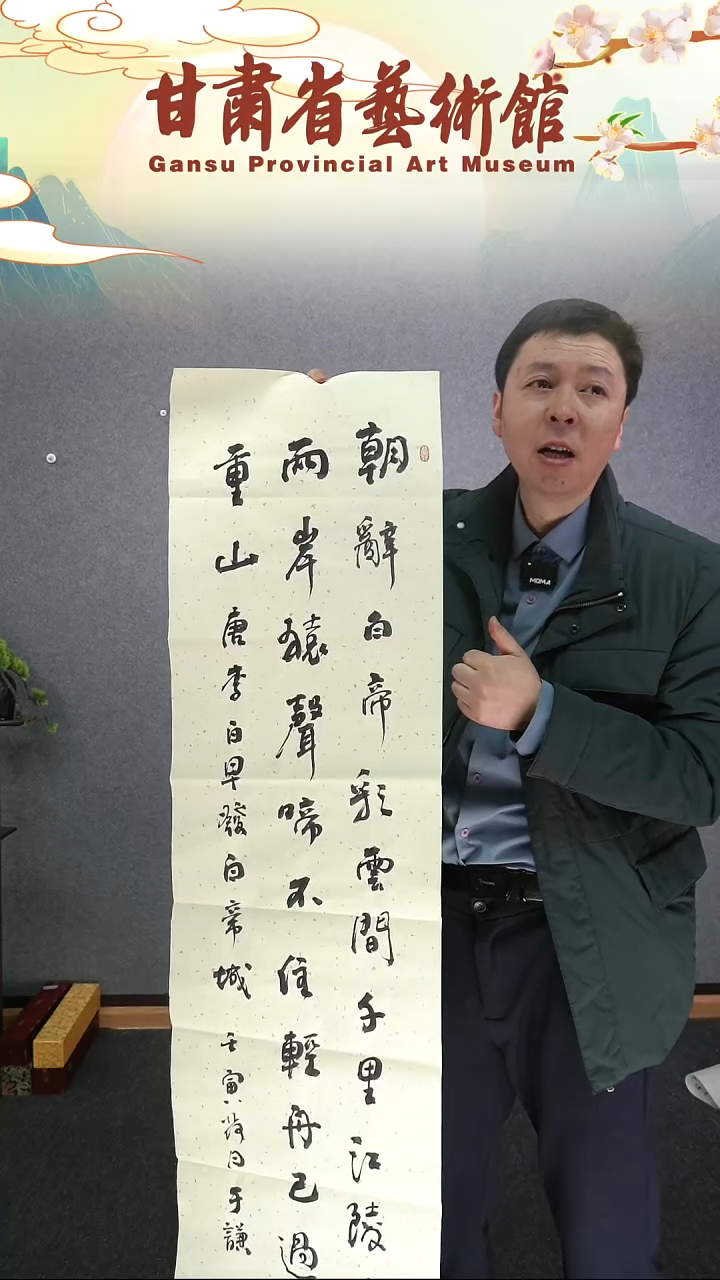 甘肅省藝術館
Gansu Provincial Art Museum
朝辭白帝彩雲間千里江陵
兩岸猿聲啼不住輕舟已過
重山唐李白早發白帝城
壬寅 月于謙
MOMA